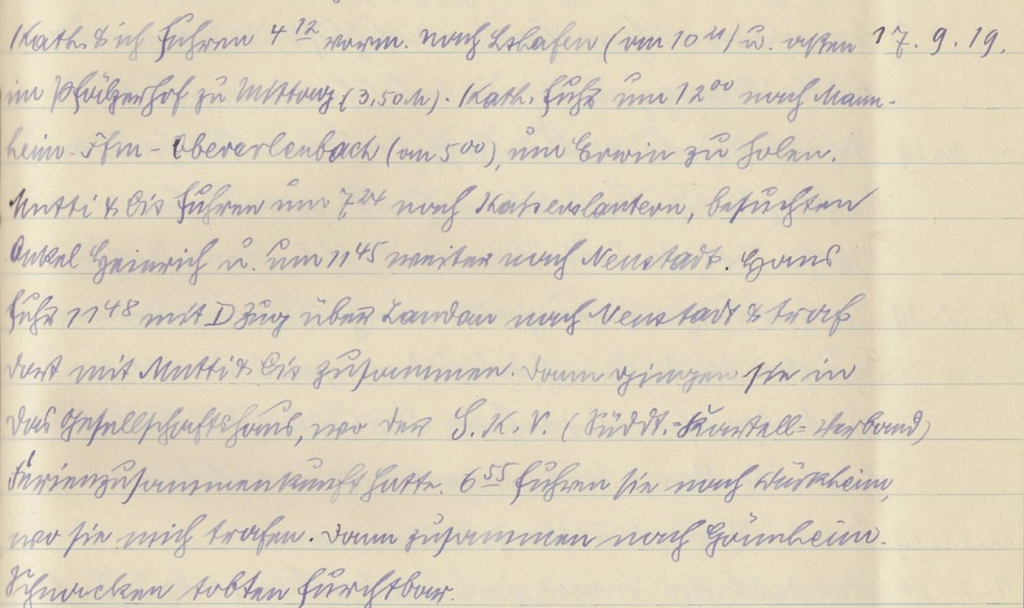 Kath. & ich fuhren 4¹² vorm. nach Lshafen (an 10¹¹) u. aßen 17.9.19.
im Pfälzerhof zu Mittag (3,50 M). Kath. fuhr um 12⁰⁰ nach Mann-
heim - Ffm - Obererlenbach (an 5⁰⁰), um Erwin zu holen.
Mutti & Lis fuhren um 7²⁴ nach Kaiserslautern, besuchten
Onkel Heinrich u. um 11⁴⁵ weiter nach Neustadt. Hans
fuhr 11⁴⁸ mit D Zug über Landau nach Neustadt & traf
dort mit Mutti & Lis zusammen. Dann gingen sie in
das Gesellschaftshaus, wo der S.K.V. (Süddt.-Kartell-Verband)
Ferienzusammenkunft hatte. 6⁵⁵ fuhren sie nach Dürkheim,
wo sie mich trafen. Dann zusammen nach Gönnheim.
Schnacken tobten furchtbar.